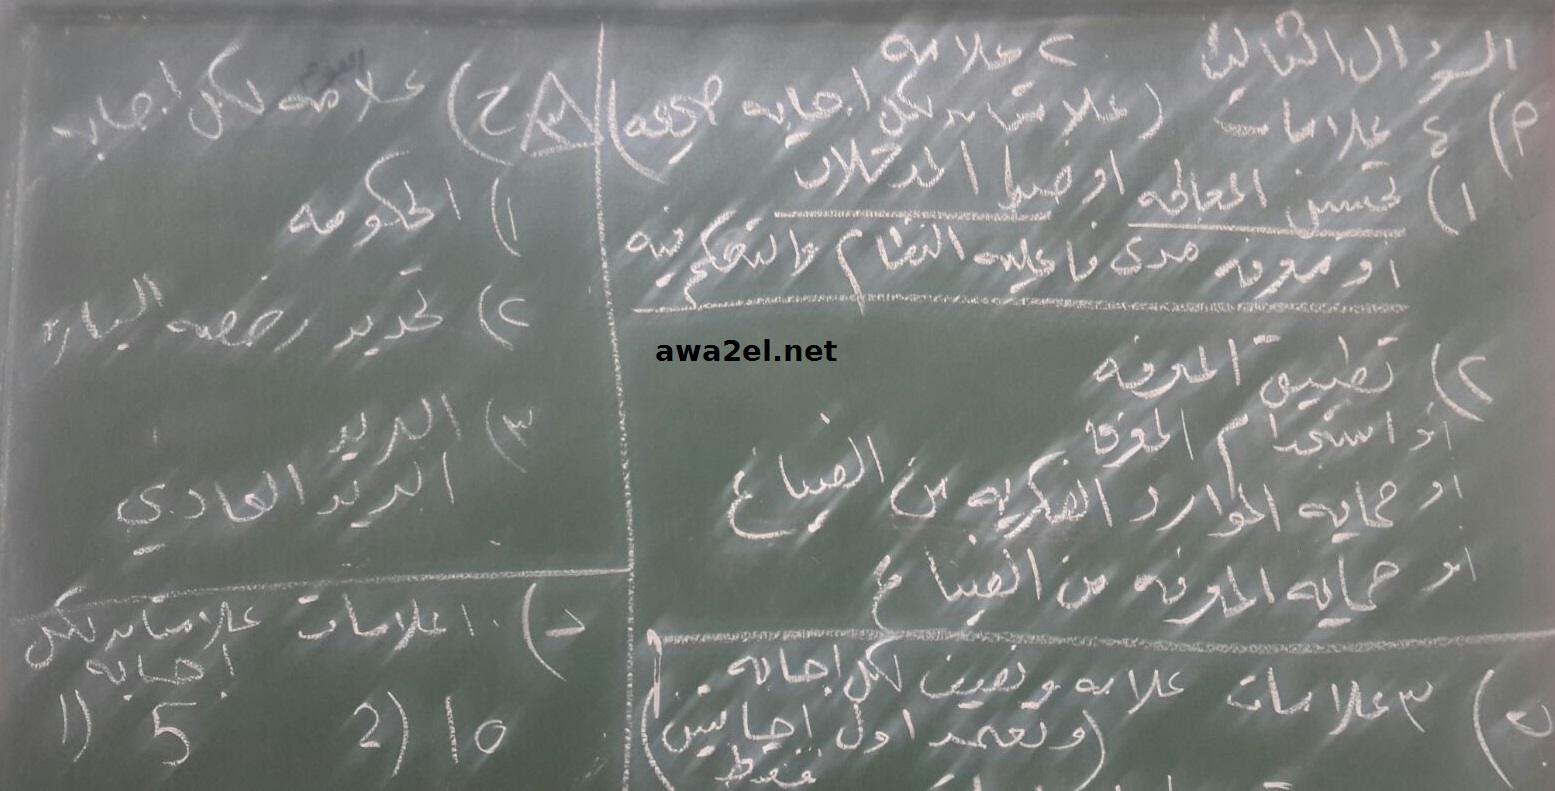 السؤال الثالث ٢٠ علامة
٢) ٤ علامات (علامتان لكل اجابه صحيحه)
١) تحسين المعالجه او ضبط المدخلات
او معرفه مدى فاعليه النظام والتحكم فيه
٢) تطبيق المعرفه
او استخدام المعرفة
او حمايه الموارد الفكريه من الضياع
او حمايه المعرفه من الضياع
ب) ٣ علامات علامه ونصف لكل اجابه
(وتعتمد اول اجابتين
فقط)
ج) ٣ علامه لكل اجابه
١) الحكومه
٢) تجديد رخصه السياره
٣) البريد
البريد العادي
د) ١٠ علامات علامتان لكل
اجابه
1) 5 2) 10
awa2el.net